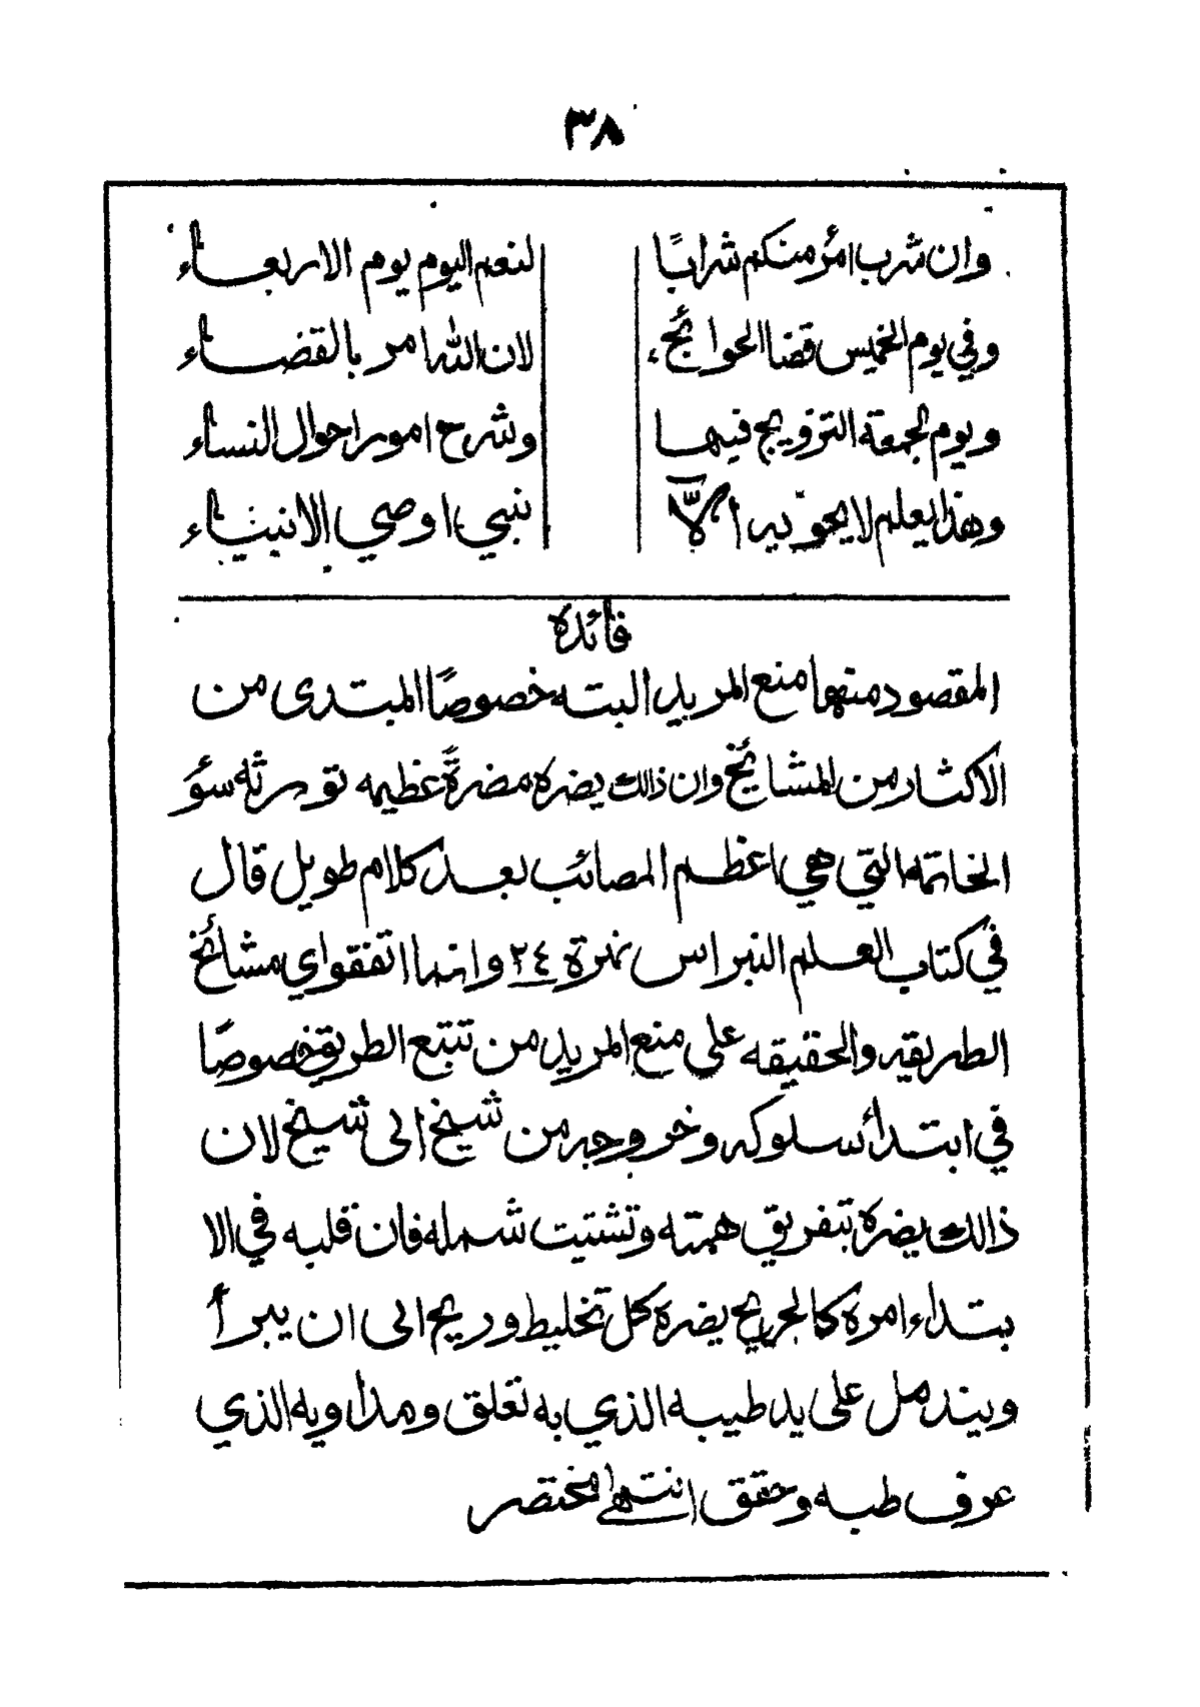 ٣٨
وان شرب امرُ منكم شرابًا لنعم اليوم يوم الاربعاء
وفي يوم الخميس قضا الحوائج، لان الله امر بالقضاء
ويوم الجمعة التزويج فيها وشرح امور احوال النساء
وهذا يعلم لا يحويه الّا نبي او وصي الانبياء
فائدة
المقصود منها منع المريد البته خصوصًا المبتدى من
الاكثار من المشائخ وان ذالك يضره مضرةً عظيمه تورثه سوُ
الخاتمه التي هي اعظم المصائب بعد كلام طويل قال
في كتاب العلم النبراس نمرة ٢٤ وانما اتفقو اي مشائخ
الطريقه والحقيقه على منع المريد من تتبع الطريق خصوصًا
في ابتدأ سلوكه وخروجه من شيخ الى شيخ لان
ذالك يضره بتفريق همته وتشتيت شمله فان قلبه في الا
بتداء امره كالجريح يضره كل تخليط وريح الى ان يبرأ
ويندمل على يد طبيبه الذي به تعلق ومداويه الذي
عرف طبه وحقق انتهى مختصر